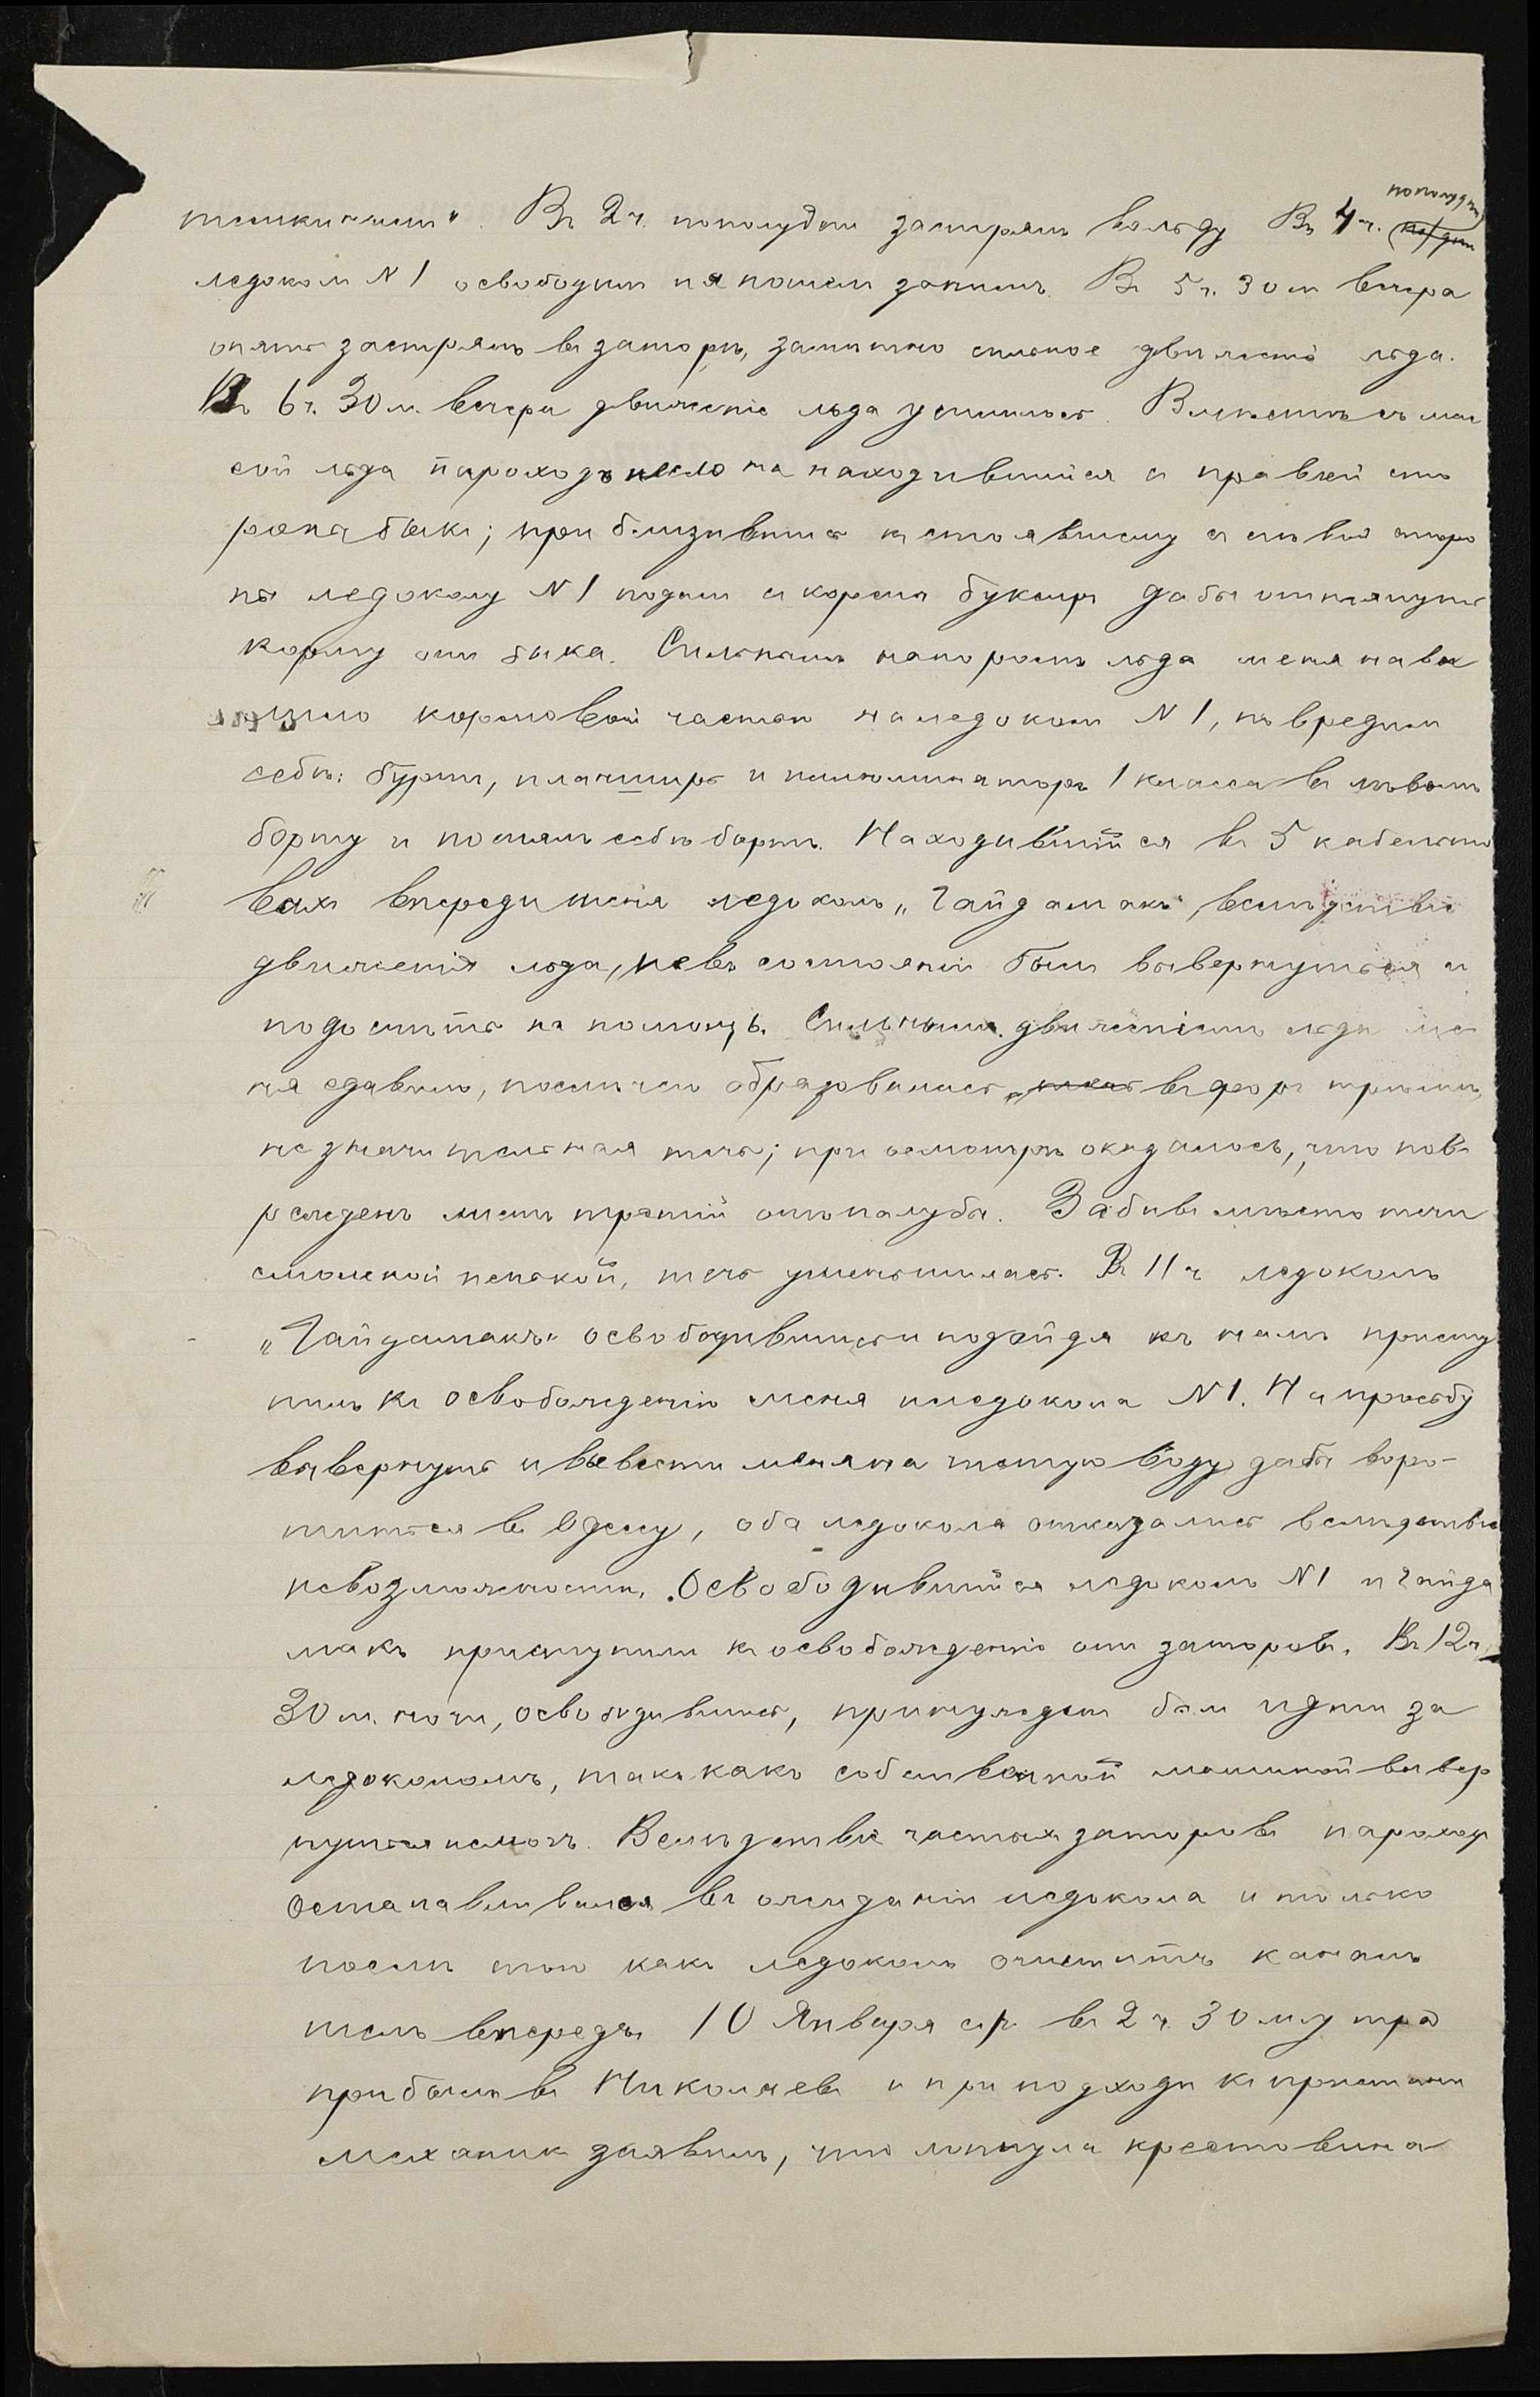 Въ 2 ч. пополудни застрялъ во льду Въ 4 ч. пополудни
ледоколъ N 1 освободилъ и я пошелъ за нимъ. Въ 5 ч. 30 м вечера
опять застрялъ въ заторѣ, замѣтно сильное движеніе льда.
Въ 6 ч. 30 м. вечера движеніе льда усилилось. Вмѣстѣ съ мас
сой льда пароходъ несло на находившійся съ правой сто
роны быкъ; приблизившись къ стоявшему съ лѣвой сторо
ны ледоколу N 1 подалъ съ кормы буксиръ дабы оттянуть
корму отъ быка. Сильнымъ напоромъ льда меня нава
лило кормовой частью на ледоколъ N 1, повредилъ
себѣ: буртъ, планширь и иллюминаторъ 1 класса въ лѣвомъ
борту и помялъ себѣ бортъ. Находившійся въ 5 кабельто
выхъ впереди меня ледоколъ „Гайдамакъ", вслѣдствіе
движенія льда, не въ состояніи былъ вывернуться и
подоспѣть на помощь. Сильнымъ движеніемъ льда ме
ня сдавило, послѣ чего образовалась въ форъ трюмѣ
незначительная течь; при осмотрѣ оказалось, что пов
режденъ листъ третій отъ палубы. Забивъ мѣсто течи
смоленой пенькой, течь уменьшилась. Въ 11 ч ледоколъ
„Гайдамакъ" освободившись и подойдя къ намъ присту
пилъ къ освобожденію меня и ледокола N 1. На просьбу
вывернуть и вывести меня на чистую воду дабы воро-
титься въ Одессу, оба ледокола отказались вслѣдствіе
невозможности. Освободившійся ледоколъ N 1 и Гайда
макъ приступили къ освобожденію отъ заторовъ. Въ 12 ч.
30 м. ночи, освободившись, принужденъ былъ идти за
ледоколомъ, такъ какъ собственной машиной вывер
нуться не могъ. Вслѣдствіе частыхъ заторовъ пароходъ
останавливался въ ожиданіи ледокола и только
послѣ того какъ ледоколъ очиститъ каналъ
шелъ впередъ. 10 Января с/г. въ 2 ч. 30 м у тра
прибылъ въ Николаевъ и при подходѣ къ пристани
механикъ заявилъ, что лопнула крестовина